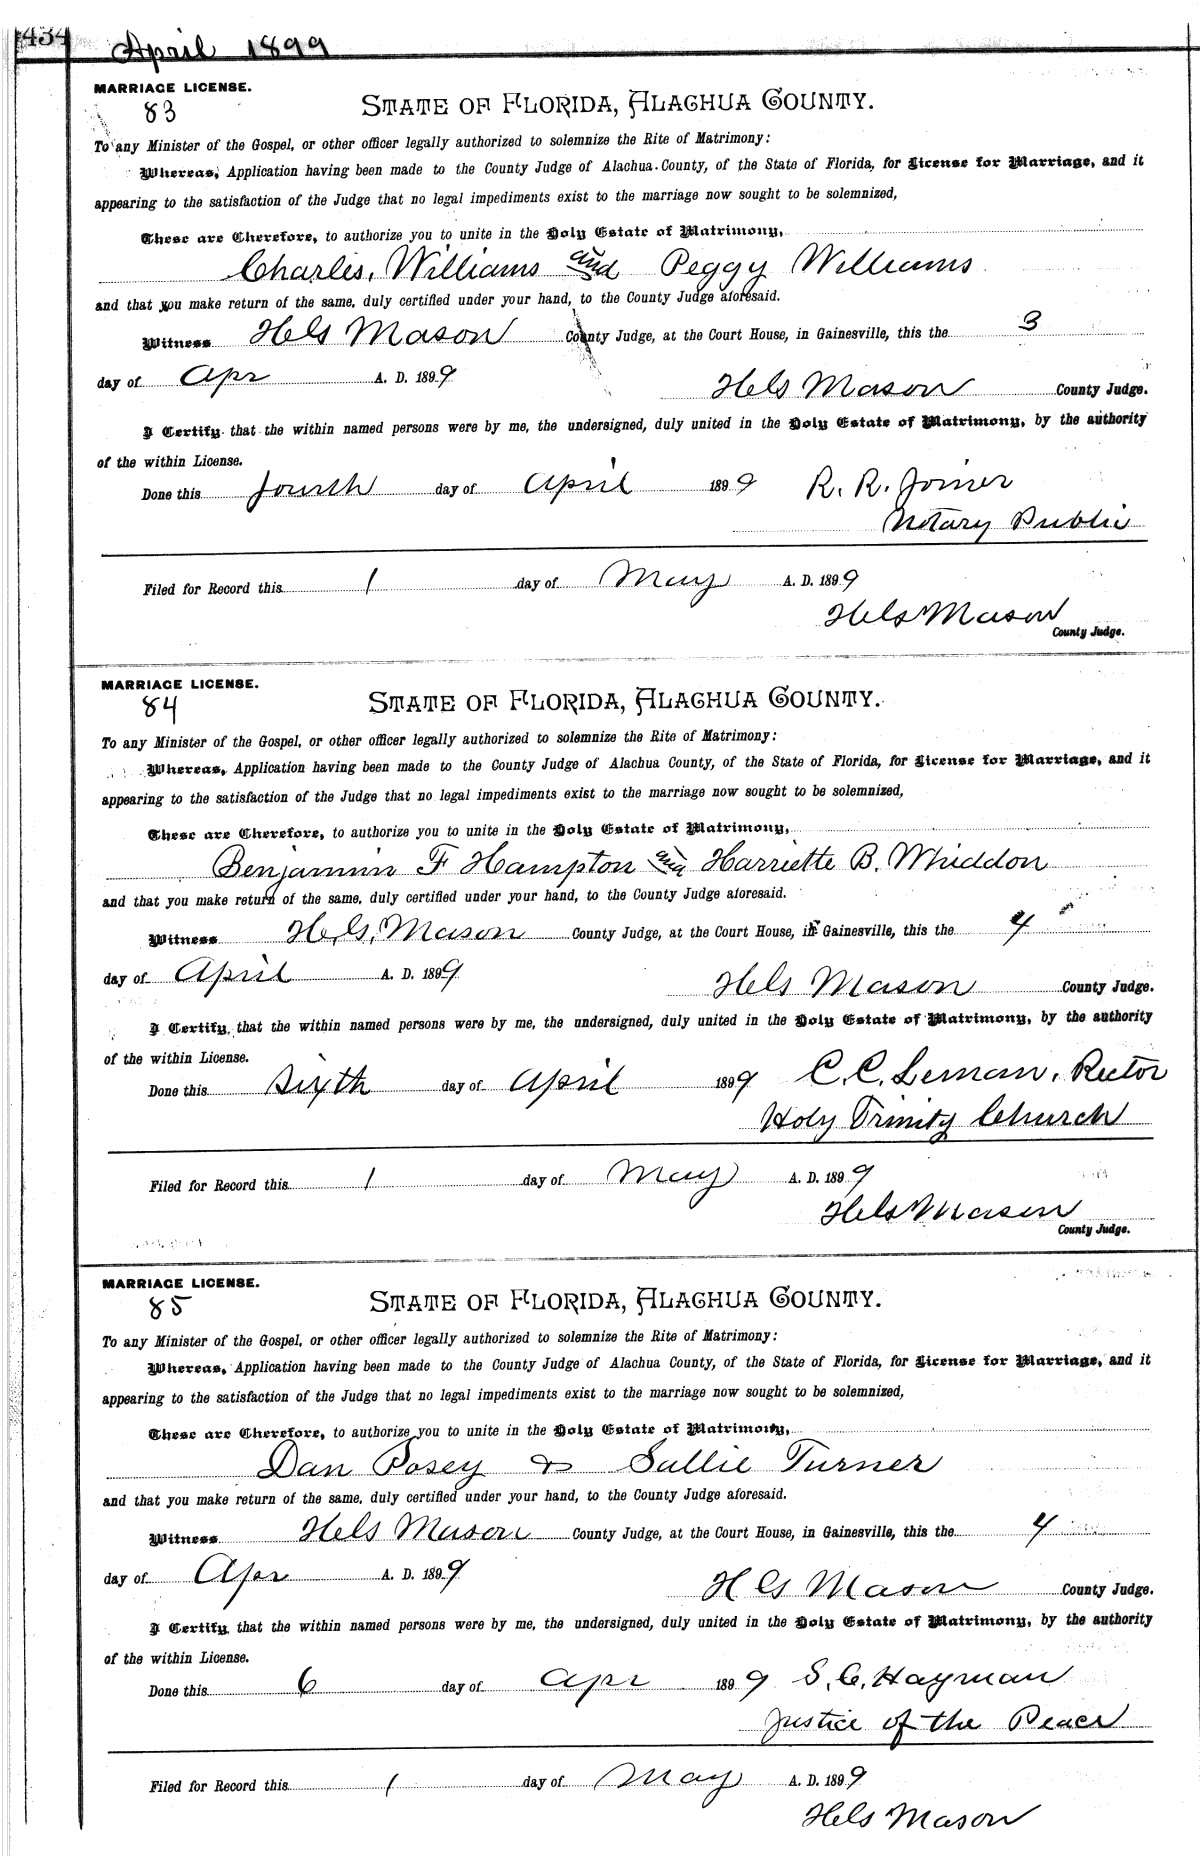 434 April 1899
MARRIAGE LICENSE.
83
STATE OF FLORIDA, ALACHUA COUNTY.
To any Minister of the Gospel, or other officer legally authorized to solemnize the Rite of Matrimony:
Whereas, Application having been made to the County Judge of Alachua County, of the State of Florida, for License for Marriage, and it
appearing to the satisfaction of the Judge that no legal impediments exist to the marriage now sought to be solemnized,
These are Therefore, to authorize you to unite in the Holy Estate of Matrimony,
Charles Williams and Peggy Williams
and that you make return of the same, duly certified under your hand, to the County Judge aforesaid.
Witness H G Mason County Judge, at the Court House, in Gainesville, this the 3
day of Apr A. D. 1899 H G Mason County Judge.
I Certify that the within named persons were by me, the undersigned, duly united in the Holy Estate of Matrimony, by the authority
of the within License.
Done this fourth day of April 1899 R. R. Joiner
Notary Public
Filed for Record this 1 day of May A. D. 1899
H G Mason
County Judge.
MARRIAGE LICENSE.
84
STATE OF FLORIDA, ALACHUA COUNTY.
To any Minister of the Gospel, or other officer legally authorized to solemnize the Rite of Matrimony:
Whereas, Application having been made to the County Judge of Alachua County, of the State of Florida, for License for Marriage, and it
appearing to the satisfaction of the Judge that no legal impediments exist to the marriage now sought to be solemnized,
These are Therefore, to authorize you to unite in the Holy Estate of Matrimony,
Benjamin F Hampton and Harriette B. Whiddon
and that you make return of the same, duly certified under your hand, to the County Judge aforesaid.
Witness H. G. Mason County Judge, at the Court House, in Gainesville, this the 4
day of April A. D. 1899 H G Mason County Judge.
I Certify, that the within named persons were by me, the undersigned, duly united in the Holy Estate of Matrimony, by the authority
of the within License.
Done this Sixth day of April 1899 C. C. Leman, Rector
Holy Trinity Church
Filed for Record this 1 day of May A. D. 1899
H G Mason
County Judge.
MARRIAGE LICENSE.
85
STATE OF FLORIDA, ALACHUA COUNTY.
To any Minister of the Gospel, or other officer legally authorized to solemnize the Rite of Matrimony:
Whereas, Application having been made to the County Judge of Alachua County, of the State of Florida, for License for Marriage, and it
appearing to the satisfaction of the Judge that no legal impediments exist to the marriage now sought to be solemnized,
These are Therefore, to authorize you to unite in the Holy Estate of Matrimony,
Dan Posey & Sallie Turner
and that you make return of the same, duly certified under your hand, to the County Judge aforesaid.
Witness H G Mason County Judge, at the Court House, in Gainesville, this the 4
day of Apr A. D. 1899 H G Mason County Judge.
I Certify, that the within named persons were by me, the undersigned, duly united in the Holy Estate of Matrimony, by the authority
of the within License.
Done this 6 day of Apr 1899 S. C. Hayman
Justice of the Peace
Filed for Record this 1 day of May A. D. 1899
H G Mason